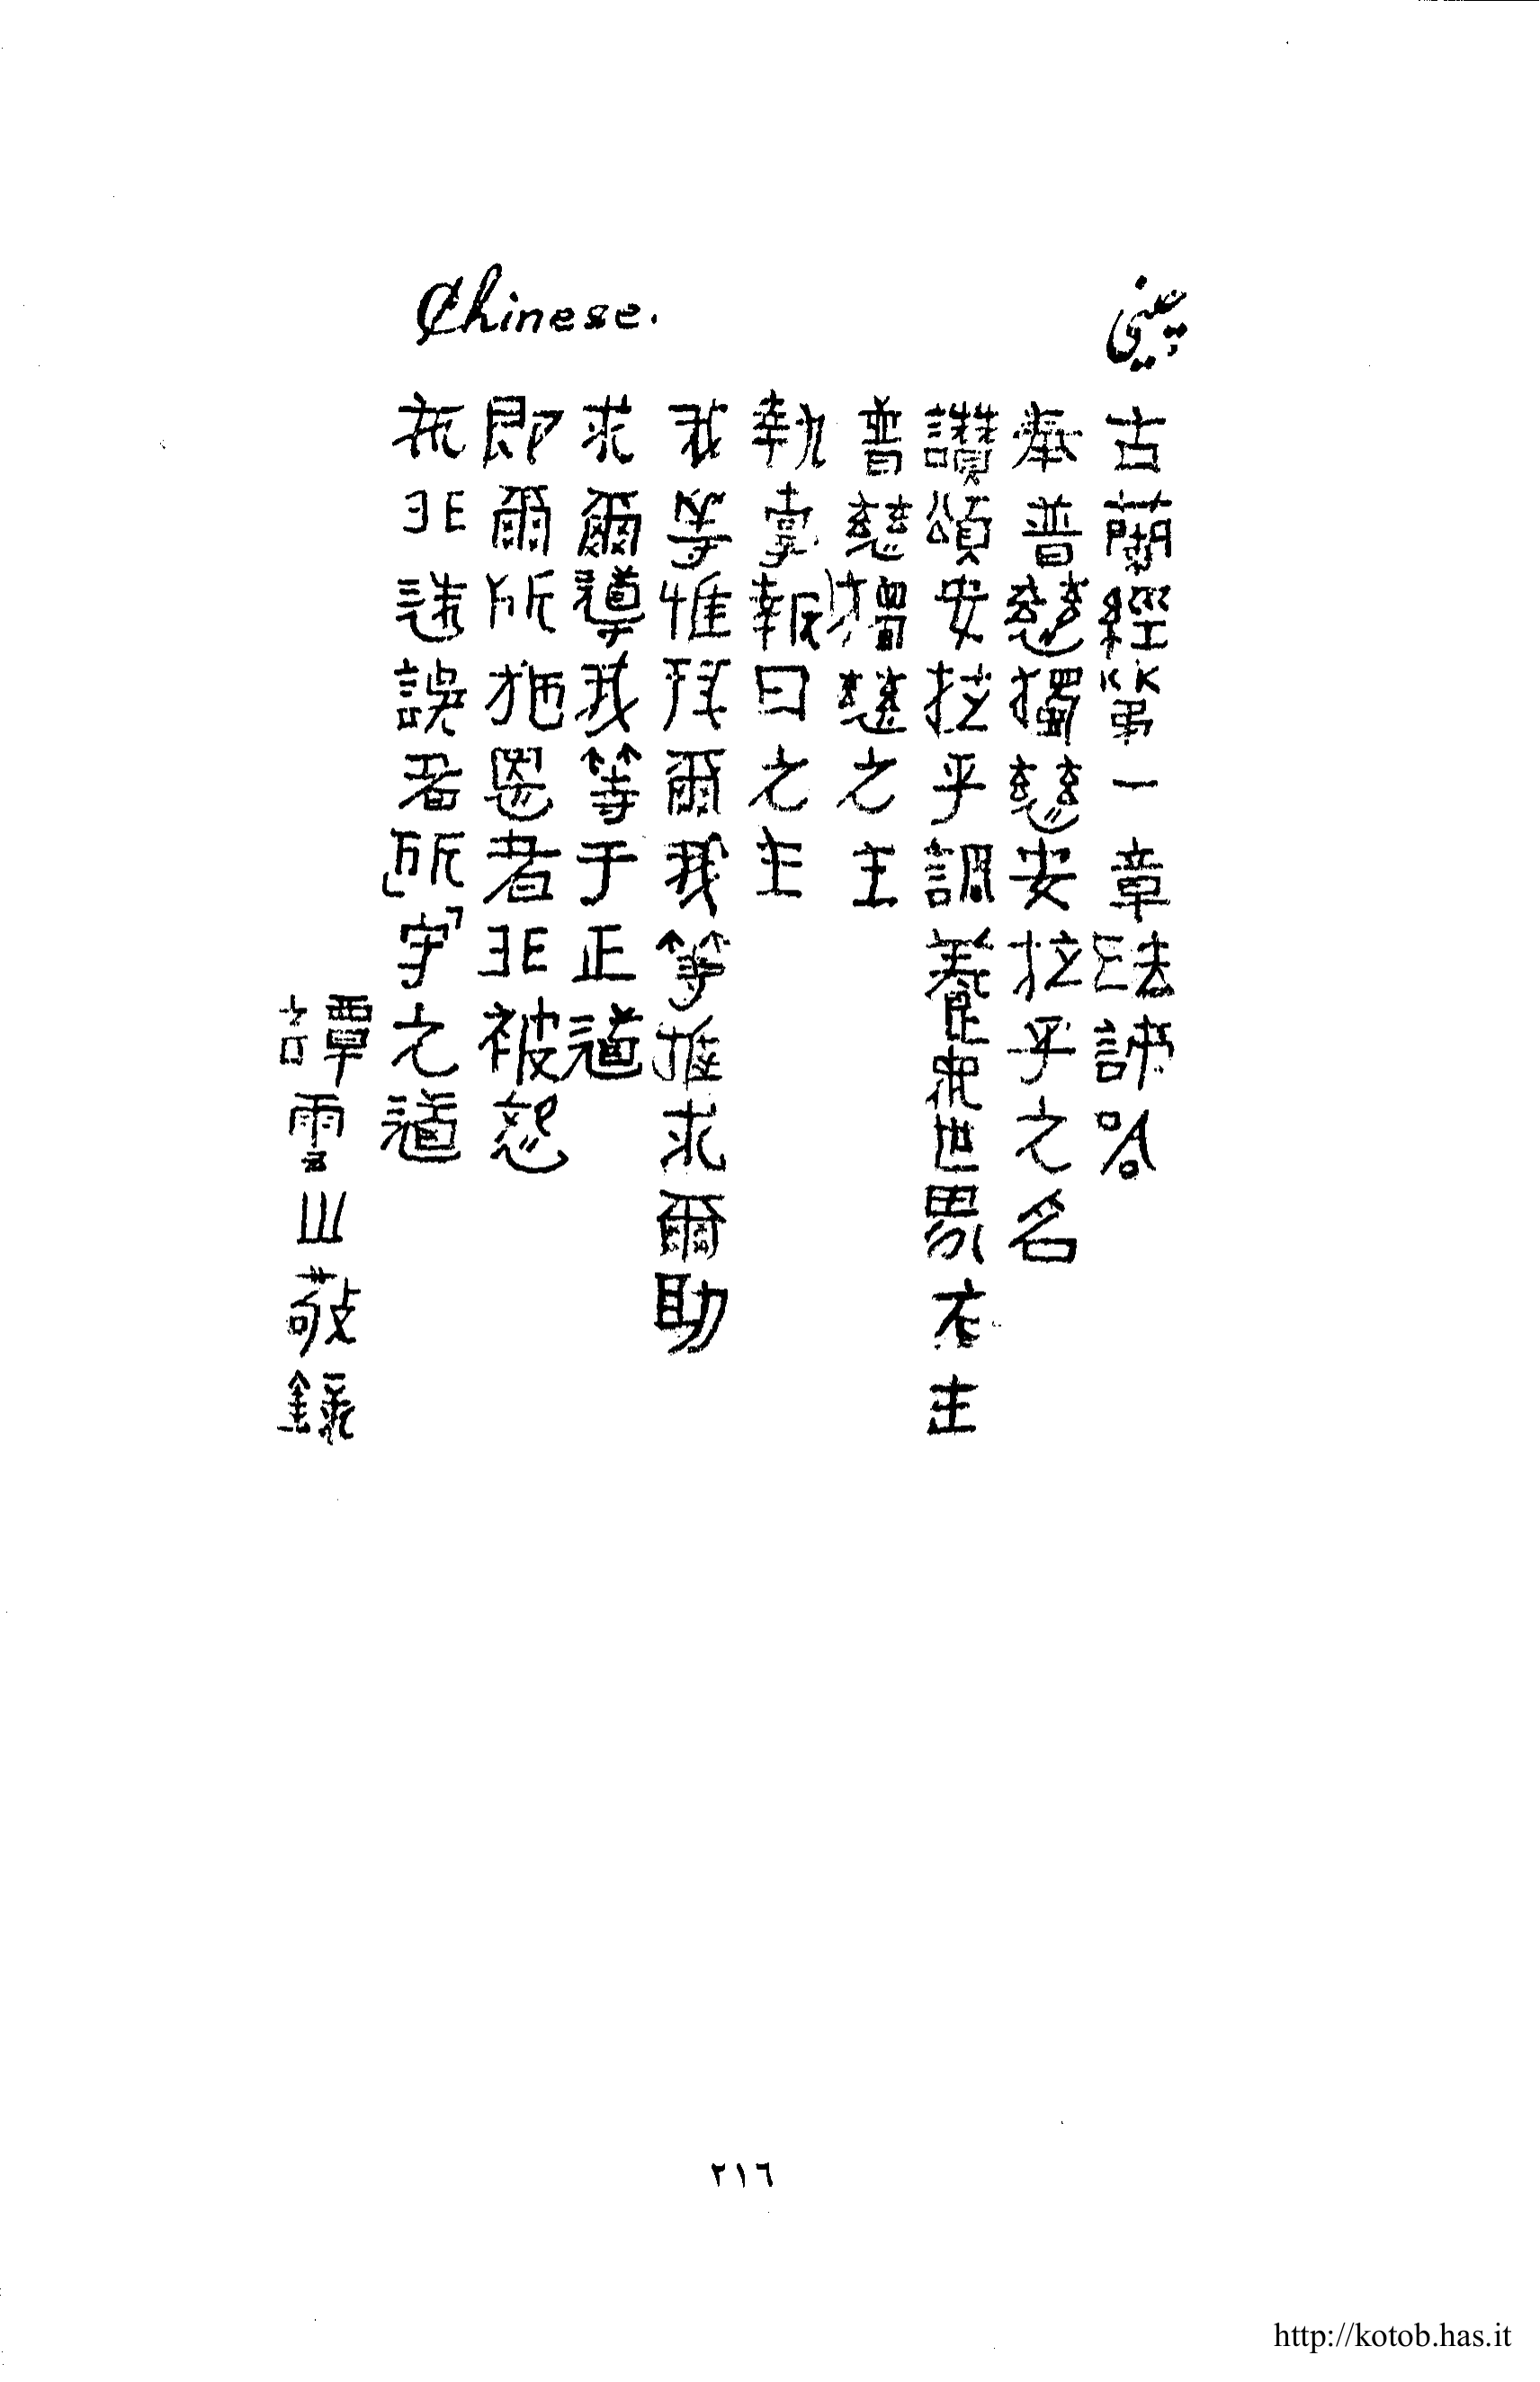 Chinese.
چینی
古蘭經第一章法諦哈
奉普慈獨慈安拉乎之名
讚頌安拉乎調養衆世界之主
普慈獨慈之主
執掌報日之主
我等惟拜爾我等惟求爾助
求爾導我等于正道
即爾所施恩者非被怒
亦非迷誤者所守之道
譚雲山敬錄
٢١٦
http://kotob.has.it